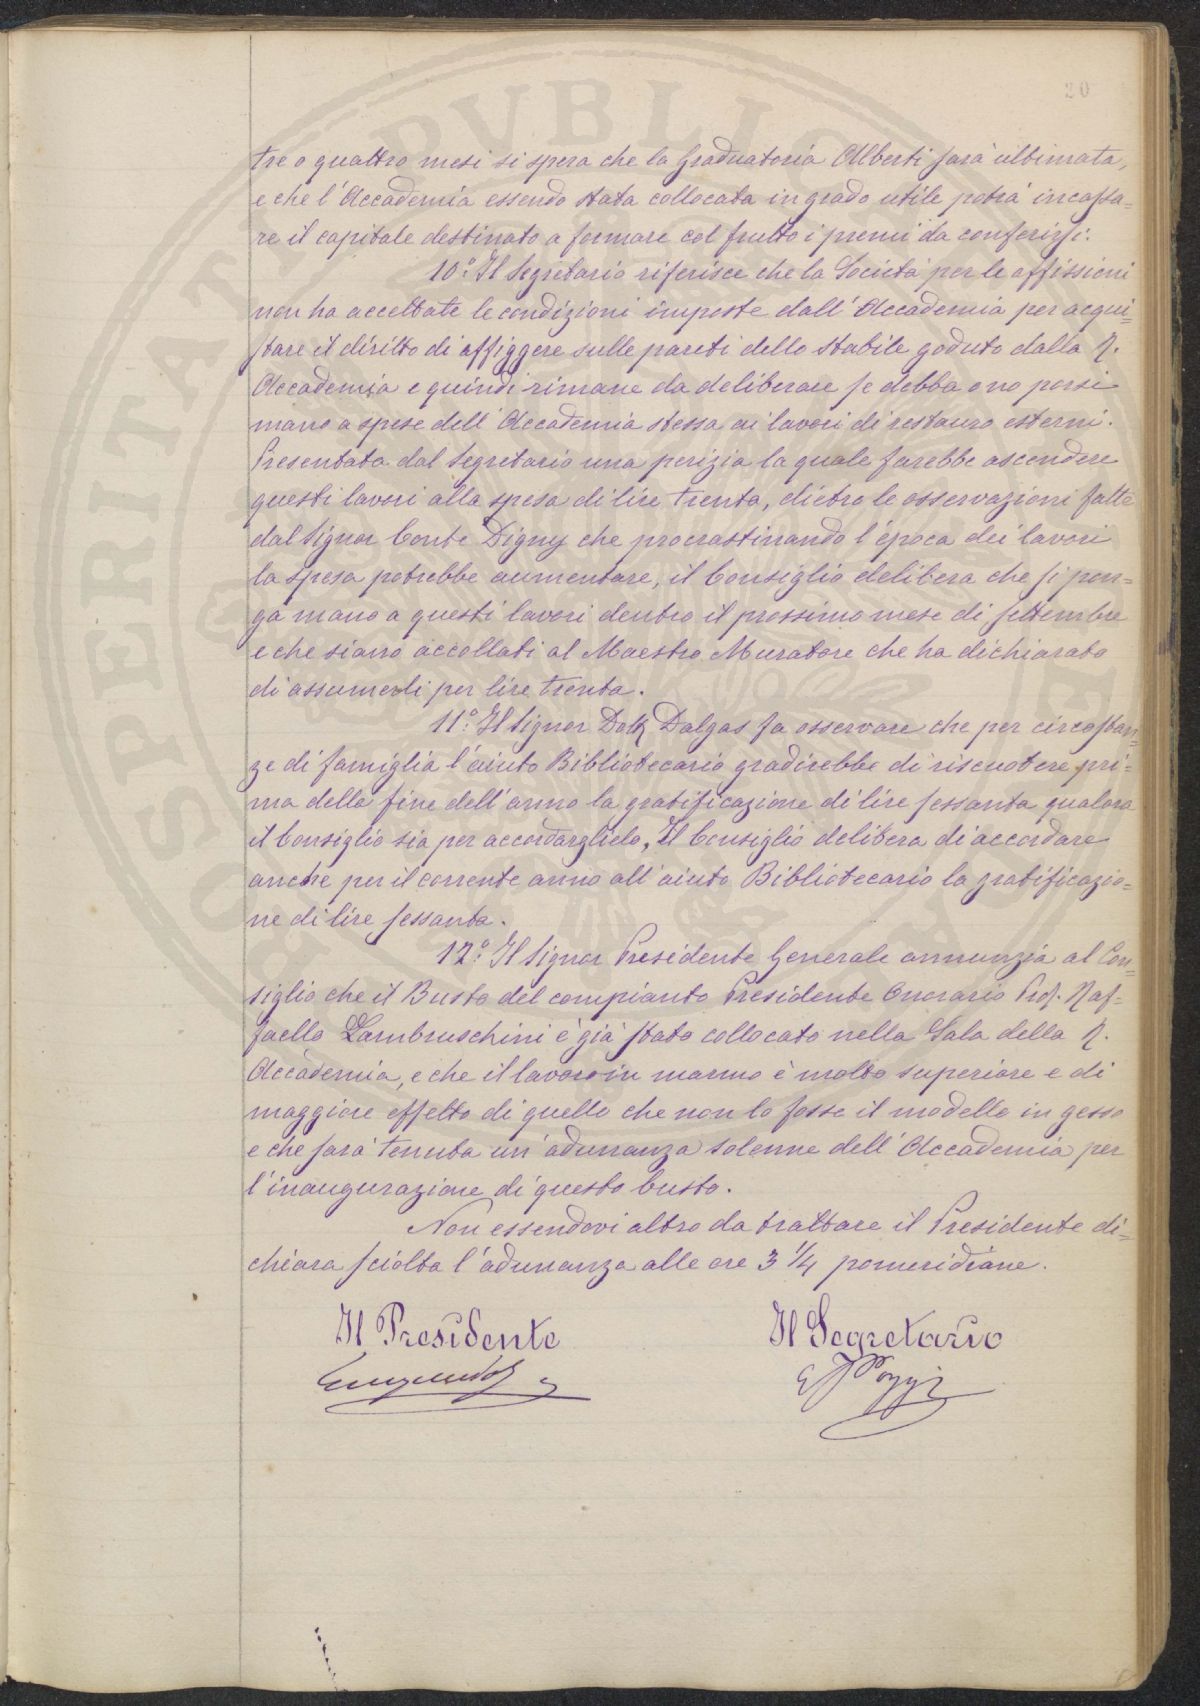 20
tre o quattro mesi si spera che la Graduatoria Alberti sarà ultimata,
e che l'Accademia essendo stata collocata in grado utile potrà incassa=
re il capitale destinato a formare col frutto i premi da conferirsi.
10.° Il Segretario riferisce che la Società per le affissioni
non ha accettate le condizioni imposte dall'Accademia per acqui=
stare il diritto di affiggere sulle pareti dello stabile goduto dalla R.
Accademia e quindi rimane da deliberare se debba o no porsi
mano a spese dell'Accademia stessa ai lavori di restauro esterni.
Presentata dal Segretario una perizia la quale farebbe ascendere
questi lavori alla spesa di lire trenta, dietro le osservazioni fatte
dal Signor Conte Digny che procrastinando l'epoca dei lavori
la spesa potrebbe aumentare, il Consiglio delibera che si pon=
ga mano a questi lavori dentro il prossimo mese di settembre
e che siano accollati al Maestro Muratore che ha dichiarato
di assumerli per lire trenta.
11.° Il Signor Dott. Dalgas fa osservare che per circostan=
ze di famiglia l'aiuto Bibliotecario gradirebbe di riscuotere pri=
ma della fine dell'anno la gratificazione di lire sessanta qualora
il Consiglio sia per accordarglielo, Il Consiglio delibera di accordare
anche per il corrente anno all'aiuto Bibliotecario la gratificazio=
ne di lire sessanta.
12.° Il Signor Presidente Generale annunzia al Con=
siglio che il Busto del compianto Presidente Onorario Prof. Raf=
faello Lambruschini è già stato collocato nella Sala della R.
Accademia, e che il lavoro in marmo è molto superiore e di
maggiore effetto di quello che non lo fosse il modello in gesso
e che sarà tenuta un'adunanza solenne dell'Accademia per
l'inaugurazione di questo busto.
Non essendovi altro da trattare il Presidente di=
chiara sciolta l'adunanza alle ore 3 1/4 pomeridiane.
Il Presidente Il Segretario
E Poggi